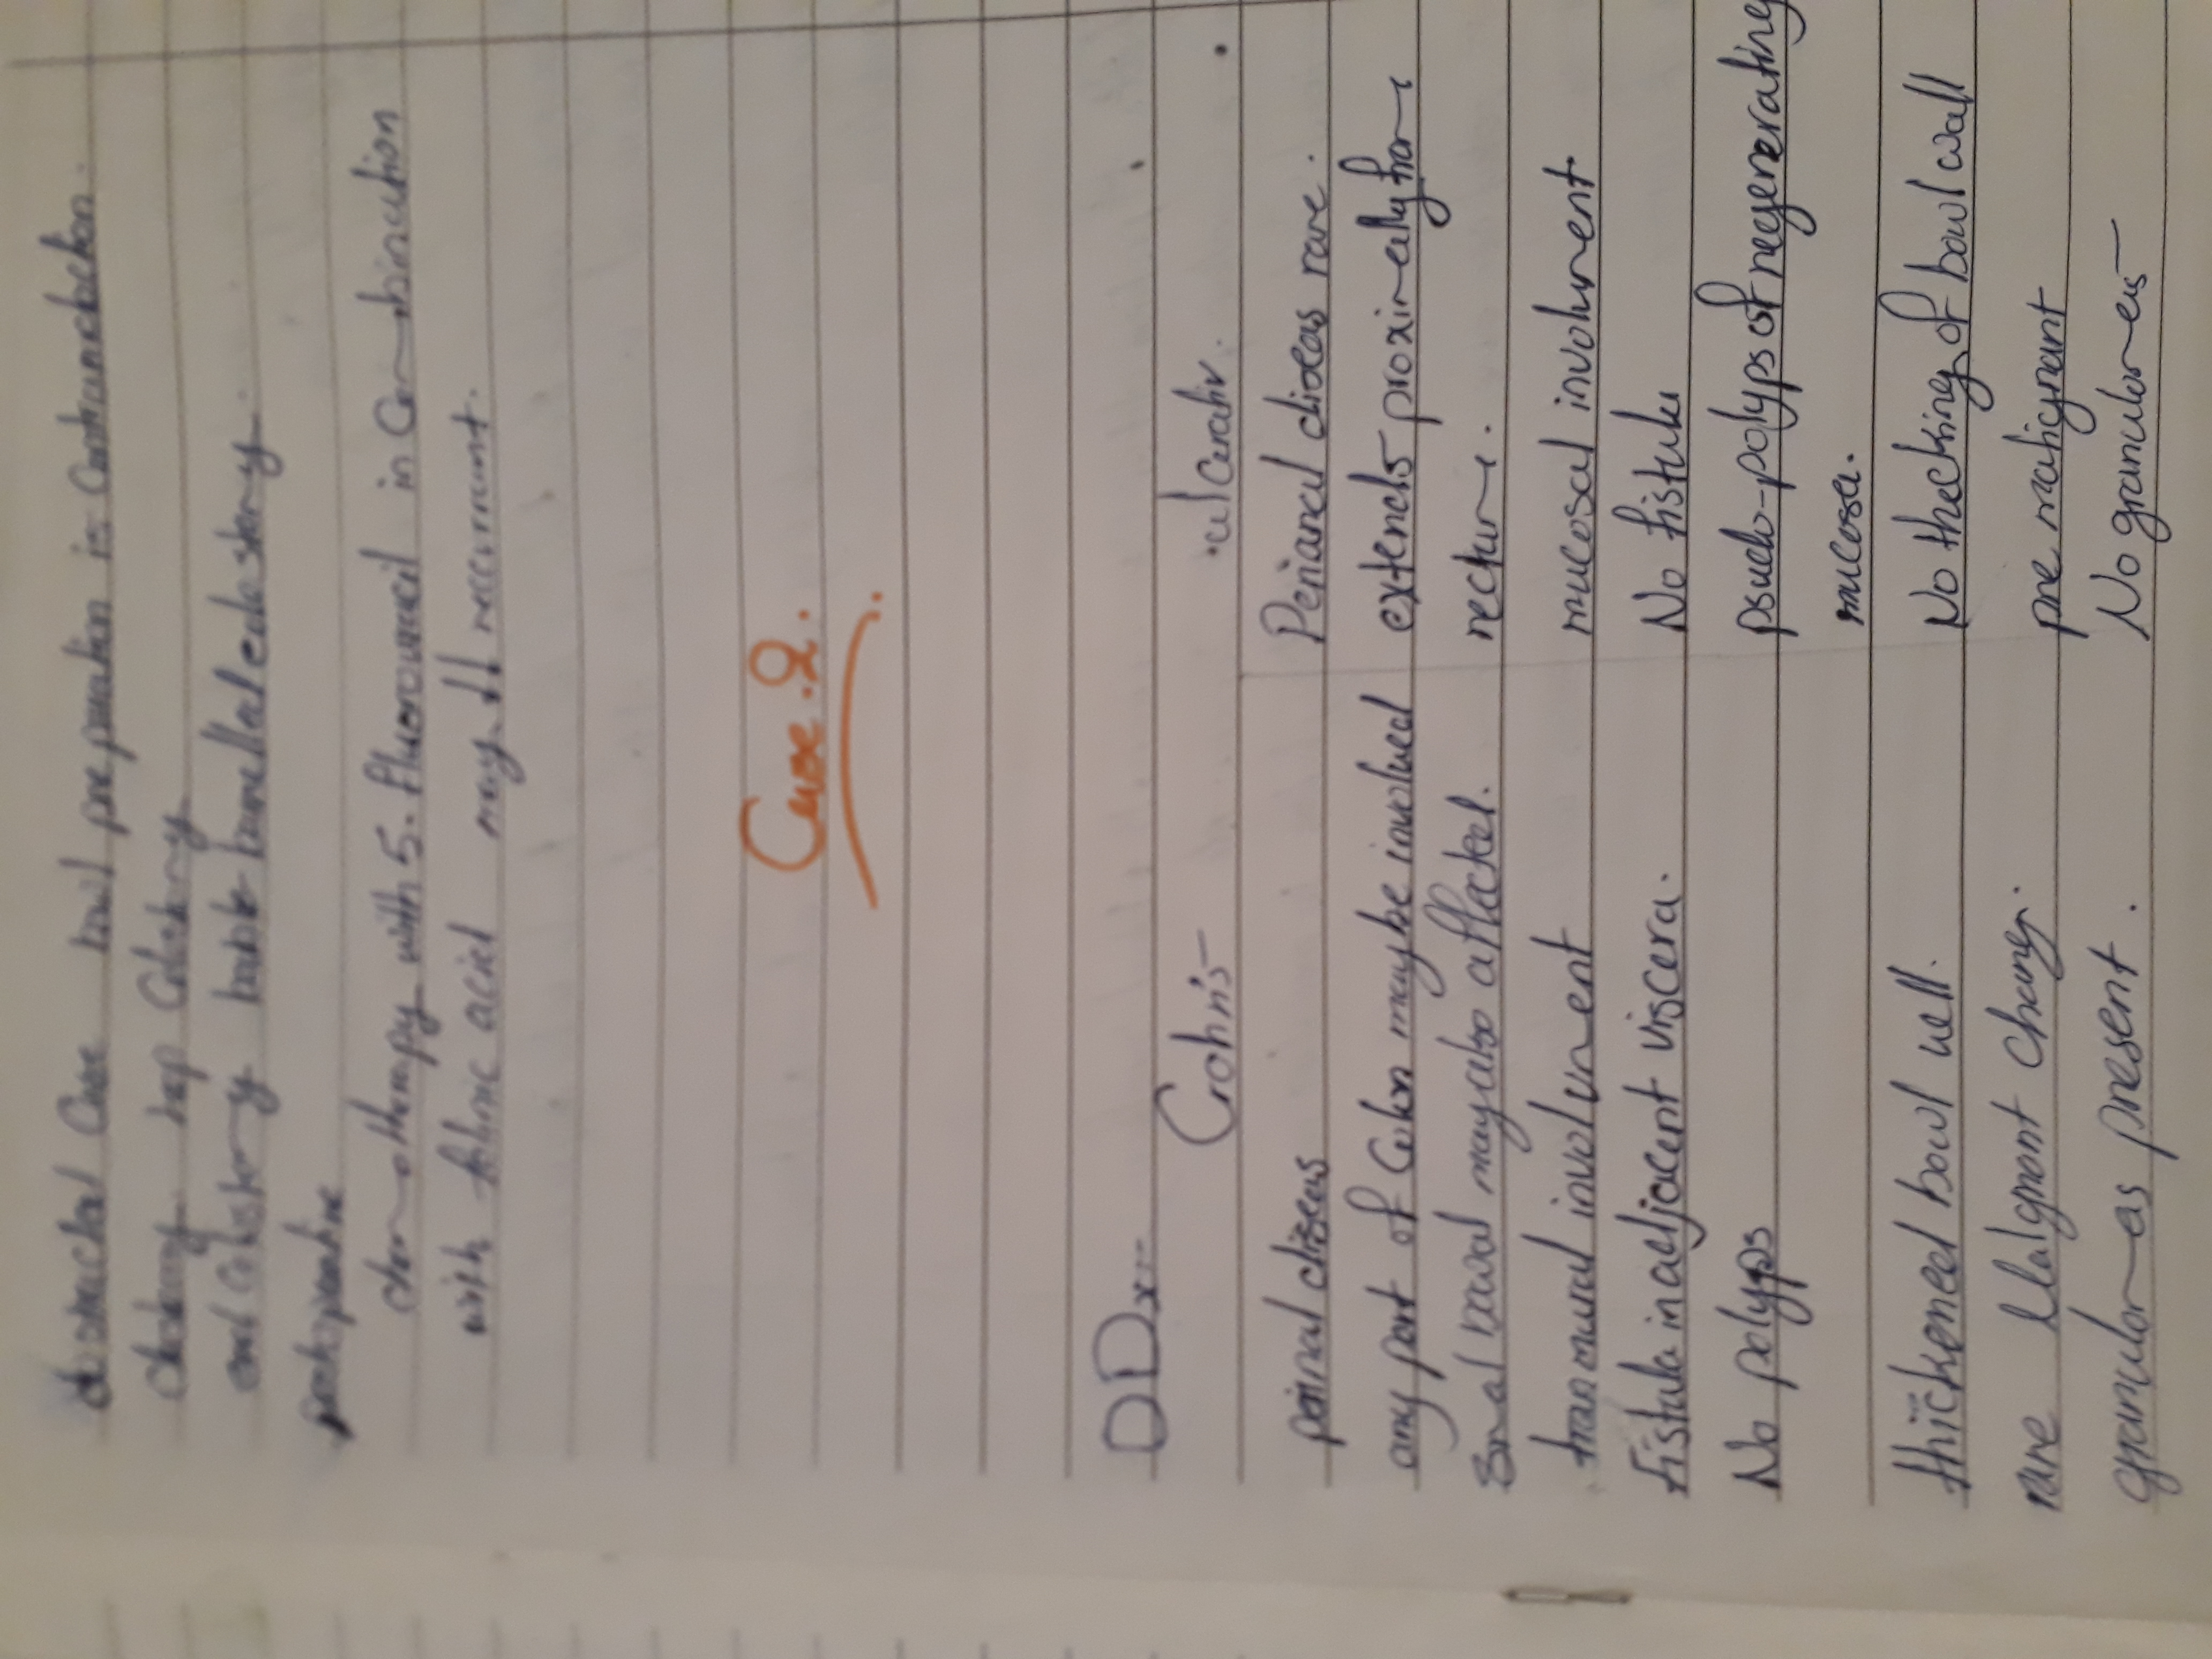 obstructed Case bowl preparation is Contraindication.
end Colostomy
chemotherapy with 5. fluorouracil in Combination
with folinic acid may ↓↓ recurrunt.
Case.2.
DDx:-
Crohn's ulcerativ.
perinal diseas Perianal diseas rare.
any part of Colon maybe involued extends proximally from
Smal bowal may also affected. rectum.
transmural involvment mucosal involument.
fistula in adjacent viscera. No fistula
No polyps psudo-polyps of regenerating
mucosa.
thickened bowl wall. No thecking of bowl wall
rare Malignant chang. pre malignant
granulomas present. No granulomas